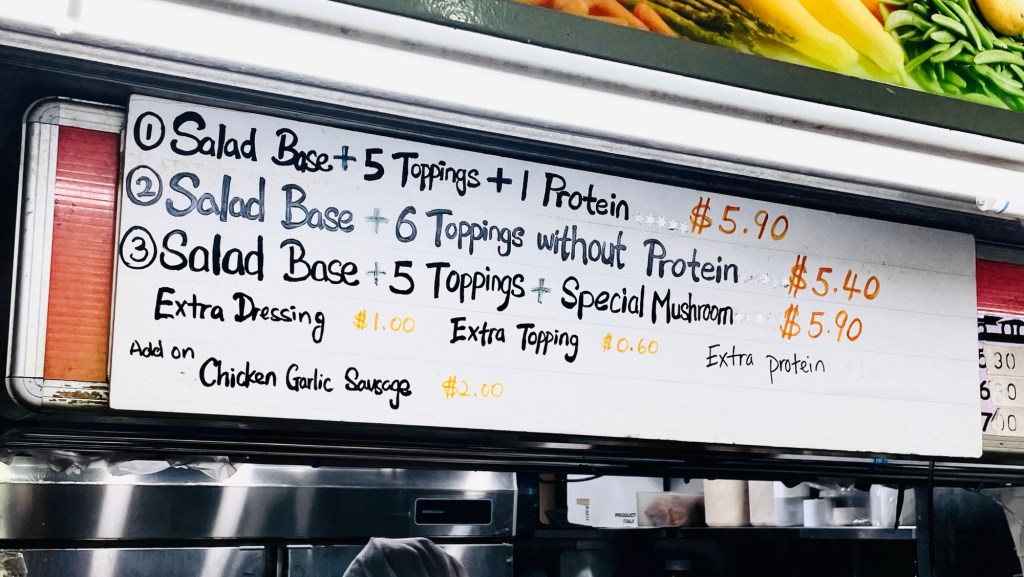 ① Salad Base + 5 Toppings + 1 Protein $5.90
② Salad Base + 6 Toppings without Protein $5.40
③ Salad Base + 5 Toppings + Special Mushroom $5.90
Extra Dressing $1.00 Extra Topping $0.60 Extra protein
Add on Chicken Garlic Sausage $2.00
PRODUCT
ITALY